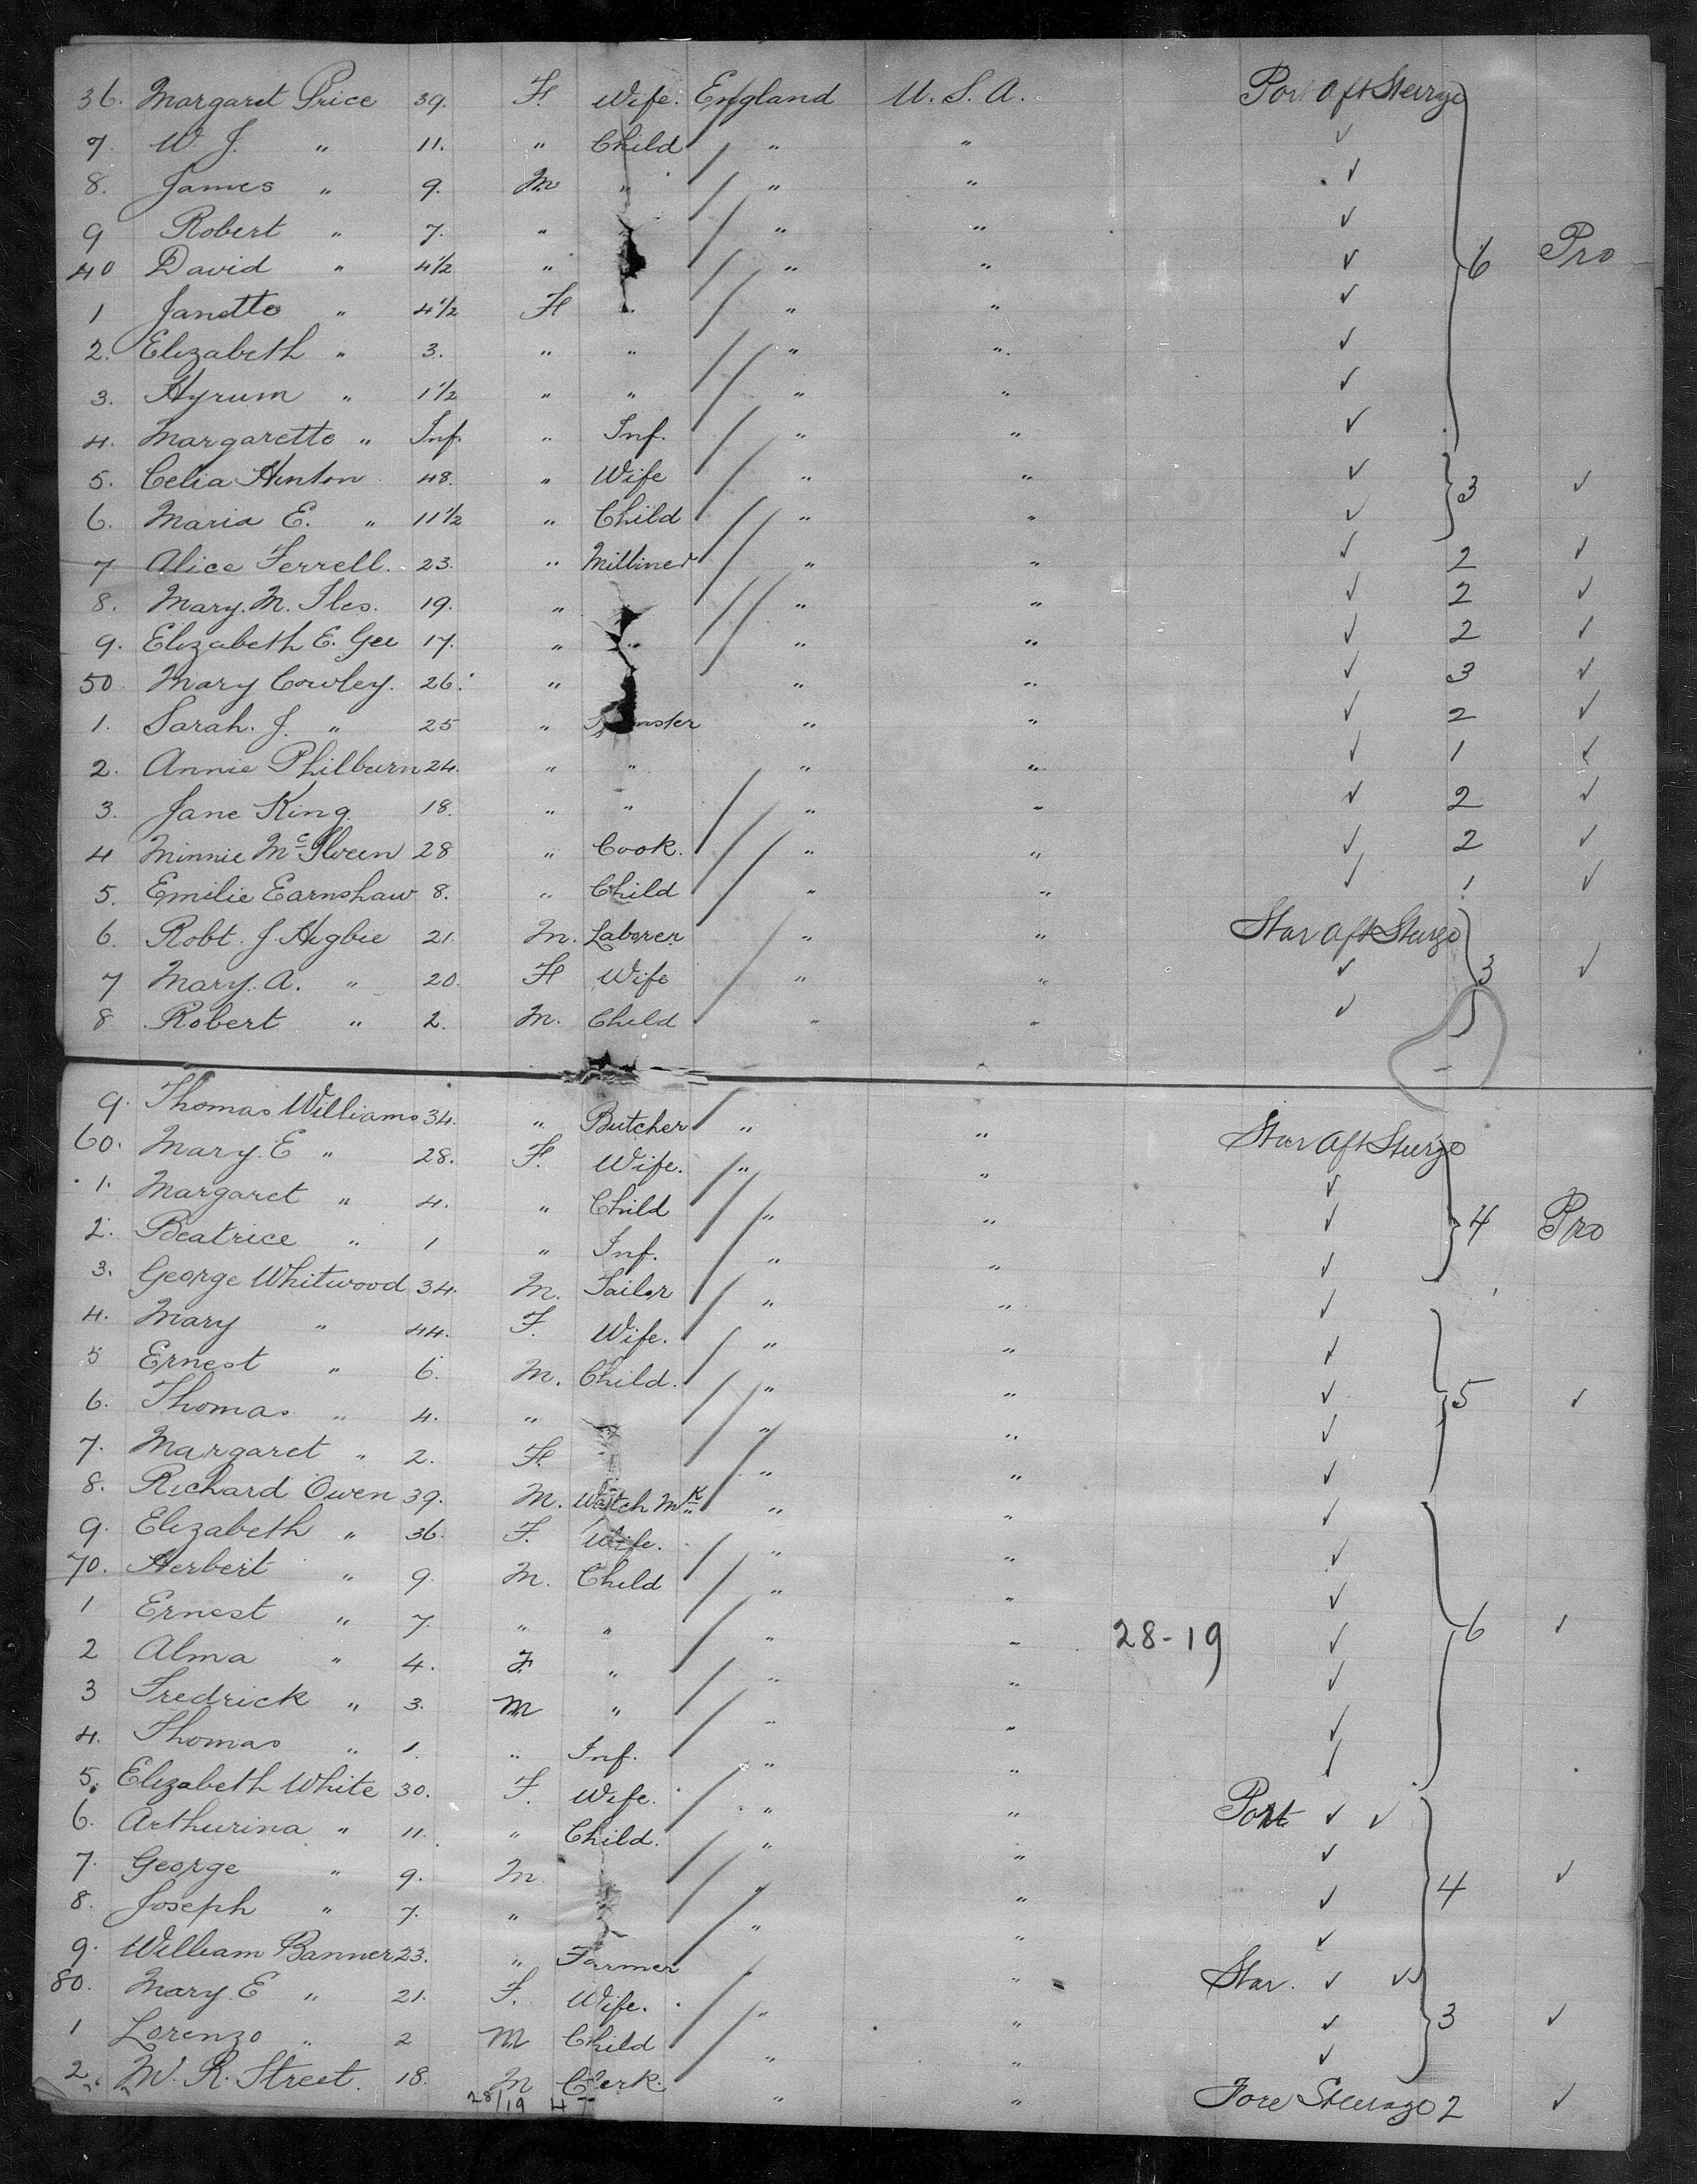 36. Margaret Price 39. F. Wife. England U.S.A. Port Aft Steerge
7. W. J. " 11. " Child " " ✓
8. James " 9. M " " " ✓
9 Robert " 7. " " " " ✓
40 David " 4½ " " " ✓ 6 Pro
1 Janette " 4½ F " " " ✓
2. Elizabeth " 3. " " " " ✓
3. Hyrum " 1½ " " " " ✓
4. Margarette " Inf. " Inf. " " ✓
5. Celia Hinton 48. " Wife " " ✓ 3 ✓
6. Maria E. " 11½ " Child " " ✓
7 Alice Ferrell. 23. " Milliner " " ✓ 2 ✓
8. Mary. M. Iles. 19. " " " ✓ 2 ✓
9. Elizabeth E. Gee 17. " " " " ✓ 2 ✓
50. Mary Cowley. 26. " " " ✓ 3 ✓
1. Sarah. J. " 25 " " " ✓ 2 ✓
2. Annie Philburn 24. " " " " ✓ 1 ✓
3. Jane King 18. " " " " ✓ 2 ✓
4 Minnie McIlveen 28 " Cook. " " ✓ 2 ✓
5. Emilie Earnshaw 8. " Child " " ✓ 1 ✓
6. Robt. J. Higbie 21. M. Laborer " " Star Aft Steerge
7 Mary. A. " 20. F Wife " " ✓ 3 ✓
8 Robert " 2. M. Child " " ✓
9. Thomas Williams 34. " Butcher " " Star Aft Steerge
60. Mary. E " 28. F. Wife. " " ✓
1. Margaret " 4. " Child " " ✓ 4 Pro
2. Beatrice " 1 " Inf. " " ✓
3. George Whitwood 34. M. Tailor " " ✓
4. Mary " 44. F. Wife. " " ✓
5 Ernest " 6. M. Child. " " ✓ 5 ✓
6. Thomas " 4. " " " ✓
7. Margaret " 2. F. " " ✓
8. Richard Owen 39. M. Watch Mk " " ✓
9. Elizabeth " 36. F. Wife. " " ✓
70. Herbert " 9. M. Child " " ✓
1 Ernest " 7. " " " " 28-19 ✓ 6 ✓
2 Alma " 4. F. " " " ✓
3 Fredrick " 3. M " " " ✓
4. Thomas " 1. " Inf. " " ✓
5. Elizabeth White 30. F. Wife. " " Port ✓ ✓
6. Arthurina " 11. " Child. " " ✓
7. George " 9. M " " ✓ 4 ✓
8. Joseph " 7. " " " ✓
9. William Banner 23. " Farmer " " Star. ✓ ✓
80. Mary. E " 21. F. Wife. " " ✓ 3 ✓
1 Lorenzo " 2 M Child " " ✓
2. W. R. Street. 18. M Clerk. " " Fore Steerage 2 ✓
28/19 4